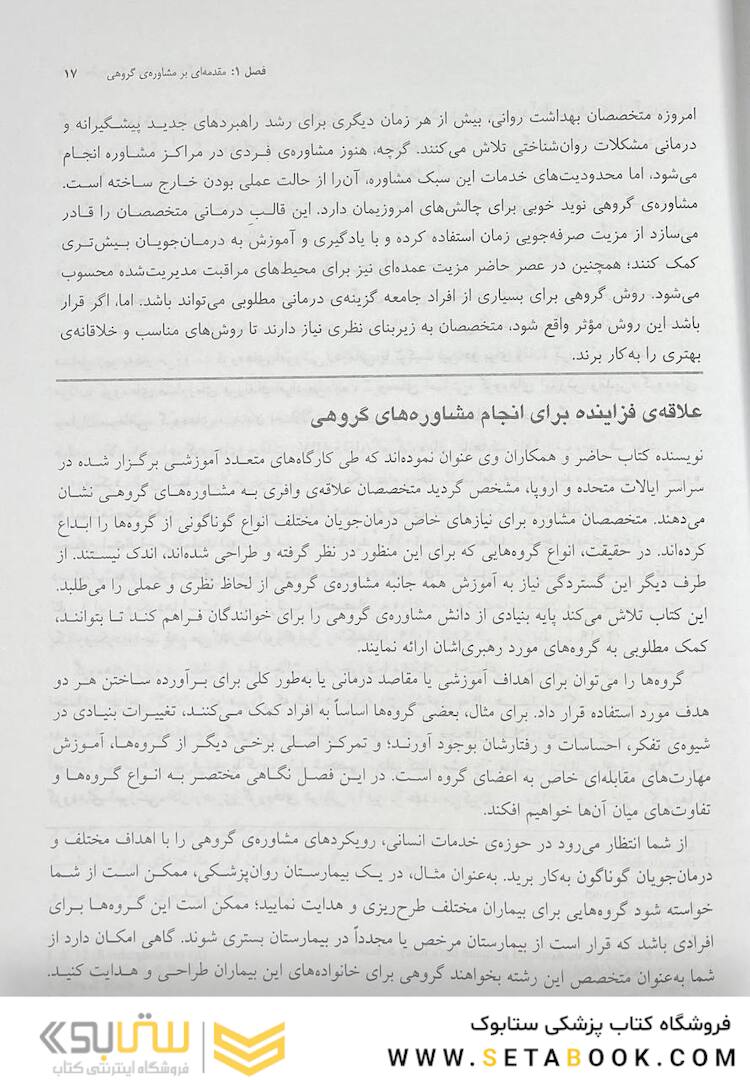 فصل ۱: مقدمه‌ای بر مشاوره‌ی گروهی ۱۷
امروزه متخصصان بهداشت روانی، بیش از هر زمان دیگری برای رشد راهبردهای جدید پیشگیرانه و
درمانی مشکلات روان‌شناختی تلاش می‌کنند. گرچه، هنوز مشاوره‌ی فردی در مراکز مشاوره انجام
می‌شود، اما محدودیت‌های خدمات این سبک مشاوره، آن‌را از حالت عملی بودن خارج ساخته است.
مشاوره‌ی گروهی نوید خوبی برای چالش‌های امروزیمان دارد. این قالبِ درمانی متخصصان را قادر
می‌سازد از مزیت صرفه‌جویی زمان استفاده کرده و با یادگیری و آموزش به درمان‌جویان بیش‌تری
کمک کنند؛ همچنین در عصر حاضر مزیت عمده‌ای نیز برای محیط‌های مراقبت مدیریت‌شده محسوب
می‌شود. روش گروهی برای بسیاری از افراد جامعه گزینه‌ی درمانی مطلوبی می‌تواند باشد. اما، اگر قرار
باشد این روش مؤثر واقع شود، متخصصان به زیربنای نظری نیاز دارند تا روش‌های مناسب و خلاقانه‌ی
بهتری را به‌کار برند.
علاقه‌ی فزاینده برای انجام مشاوره‌های گروهی
نویسنده کتاب حاضر و همکاران وی عنوان نموده‌اند که طی کارگاه‌های متعدد آموزشی برگزار شده در
سراسر ایالات متحده و اروپا، مشخص گردید متخصصان علاقه‌ی وافری به مشاوره‌های گروهی نشان
می‌دهند. متخصصان مشاوره برای نیازهای خاص درمان‌جویان مختلف انواع گوناگونی از گروه‌ها را ابداع
کرده‌اند. در حقیقت، انواع گروه‌هایی که برای این منظور در نظر گرفته و طراحی شده‌اند، اندک نیستند. از
طرف دیگر این گستردگی نیاز به آموزش همه جانبه مشاوره‌ی گروهی از لحاظ نظری و عملی را می‌طلبد.
این کتاب تلاش می‌کند پایه بنیادی از دانش مشاوره‌ی گروهی را برای خوانندگان فراهم کند تا بتوانند،
کمک مطلوبی به گروه‌های مورد رهبری‌اشان ارائه نمایند.
گروه‌ها را می‌توان برای اهداف آموزشی یا مقاصد درمانی یا به‌طور کلی برای برآورده ساختن هر دو
هدف مورد استفاده قرار داد. برای مثال، بعضی گروه‌ها اساساً به افراد کمک می‌کنند، تغییرات بنیادی در
شیوه‌ی تفکر، احساسات و رفتارشان بوجود آورند؛ و تمرکز اصلی برخی دیگر از گروه‌ها، آموزش
مهارت‌های مقابله‌ای خاص به اعضای گروه است. در این فصل نگاهی مختصر به انواع گروه‌ها و
تفاوت‌های میان آن‌ها خواهیم افکند.
از شما انتظار می‌رود در حوزه‌ی خدمات انسانی، رویکردهای مشاوره‌ی گروهی را با اهداف مختلف و
درمان‌جویان گوناگون به‌کار برید. به‌عنوان مثال، در یک بیمارستان روان‌پزشکی، ممکن است از شما
خواسته شود گروه‌هایی برای بیماران مختلف طرح‌ریزی و هدایت نمایید؛ ممکن است این گروه‌ها برای
افرادی باشد که قرار است از بیمارستان مرخص یا مجدداً در بیمارستان بستری شوند. گاهی امکان دارد از
شما به‌عنوان متخصص این رشته بخواهند گروهی برای خانواده‌های این بیماران طراحی و هدایت کنید.
فروشگاه کتاب پزشکی ستابوک
WWW.SETABOOK.COM
ستابوک
فروشگاه اینترنتی کتاب